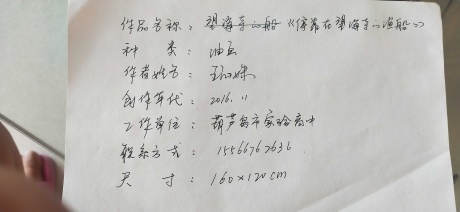 作品名称：望海寺的船《停靠在望海寺的渔船》
种 类：油画
作者姓名：
创作年代：2016.11
工作单位：葫芦岛市实验高中
联系方式：15566762636
尺 寸：160×120cm